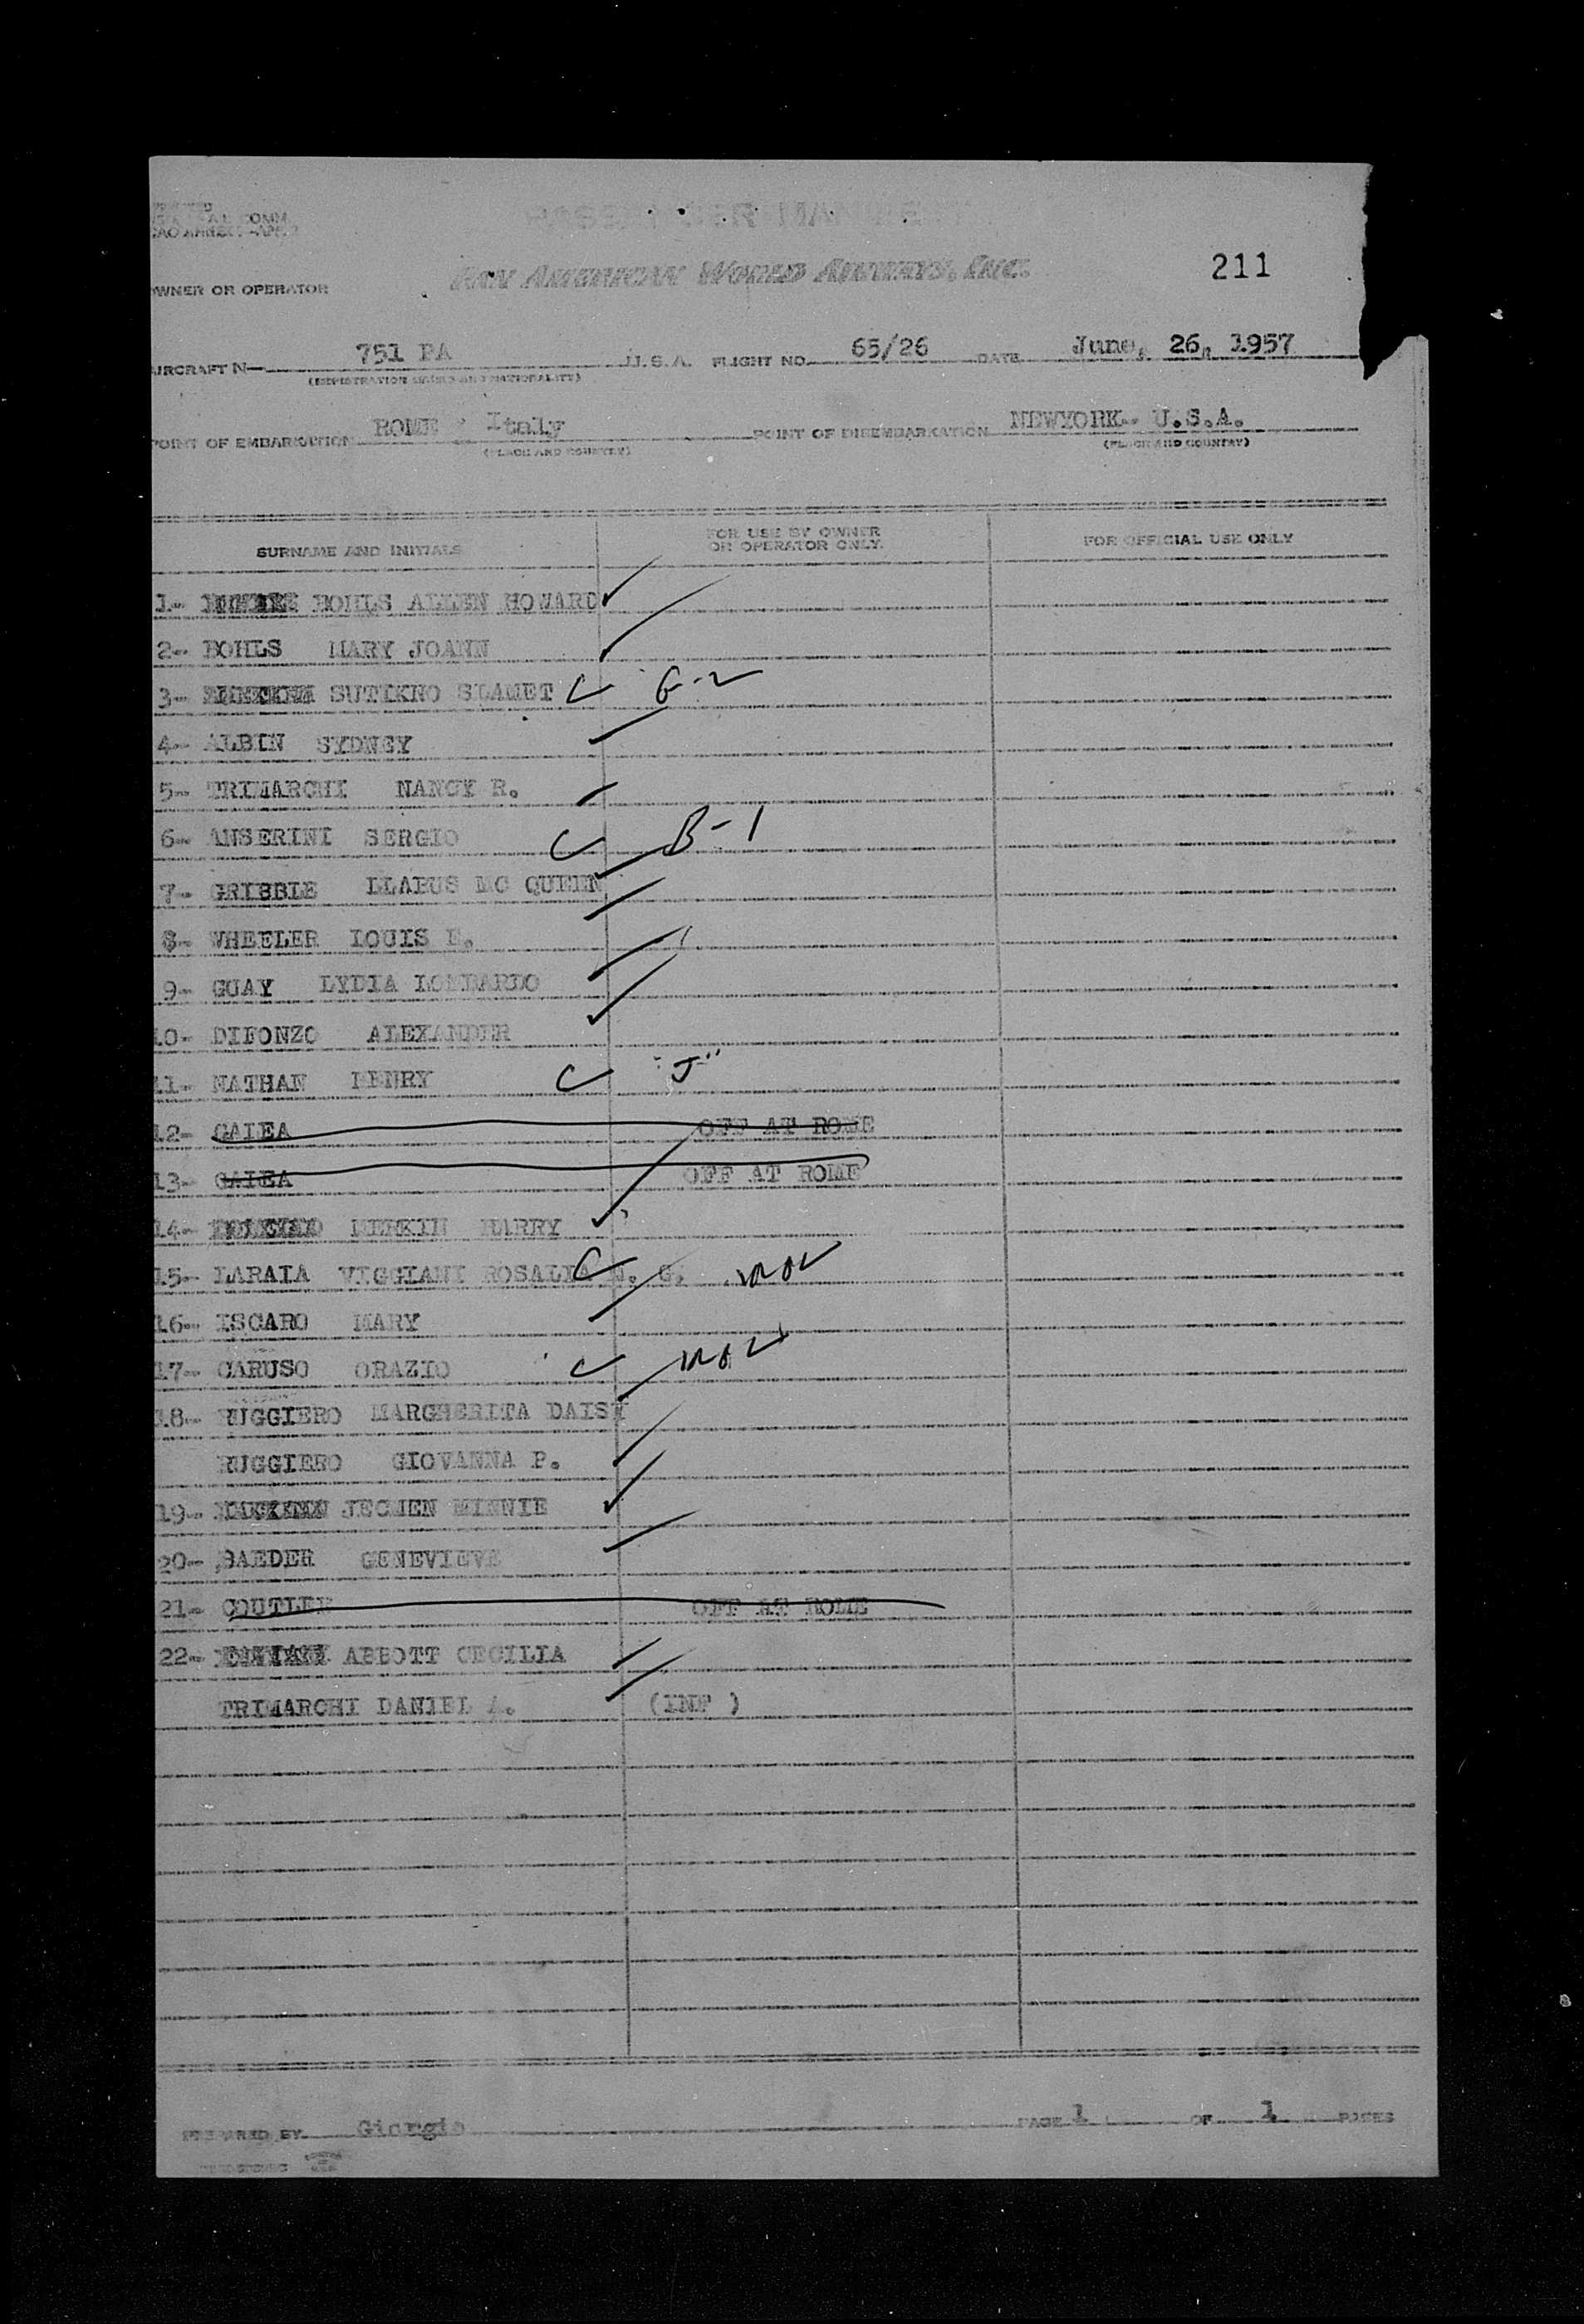 PASSENGER MANIFEST
PAN AMERICAN WORLD AIRWAYS, INC.
211
OWNER OR OPERATOR
AIRCRAFT N— 751 PA U.S.A. FLIGHT NO. 65/26 DATE June, 26, 1957
(REGISTRATION MARKS AND NATIONALITY)
POINT OF EMBARKATION ROME - Italy POINT OF DISEMBARKATION NEWYORK- U.S.A.
(PLACE AND COUNTRY) (PLACE AND COUNTRY)
SURNAME AND INITIALS FOR USE BY OWNER OR OPERATOR ONLY. FOR OFFICIAL USE ONLY
1- BOHLS ALLEN HOWARD
2- BOHLS MARY JOANN
3- SUTIKNO SLAMET C G-2
4- ALBIN SYDNEY
5- TRIMARCHI NANCY R.
6- ANSERINI SERGIO C B-1
7- GRIBBLE LLABUS MC QUEEN
8- WHEELER LOUIS E.
9- GUAY LYDIA LOMBARDO
10- DIFONZO ALEXANDER
11- NATHAN HENRY C "J"
12- GAIEA OFF AT ROME
13- GAIEA OFF AT ROME
14- MERKIN HARRY
15- LARAIA VIGGIANI ROSALIA M. G. C
16- ISCARO MARY
17- CARUSO ORAZIO C
18- RUGGIERO MARGHERITA DAISY
RUGGIERO GIOVANNA P.
19- JECMEN MINNIE
20- BAEDER GENEVIEVE
21- COUTLER OFF AT ROME
22- ABBOTT CECILIA
TRIMARCHI DANIEL A. (INF )
PREPARED BY Giorgio PAGE 1 OF 1 PAGES